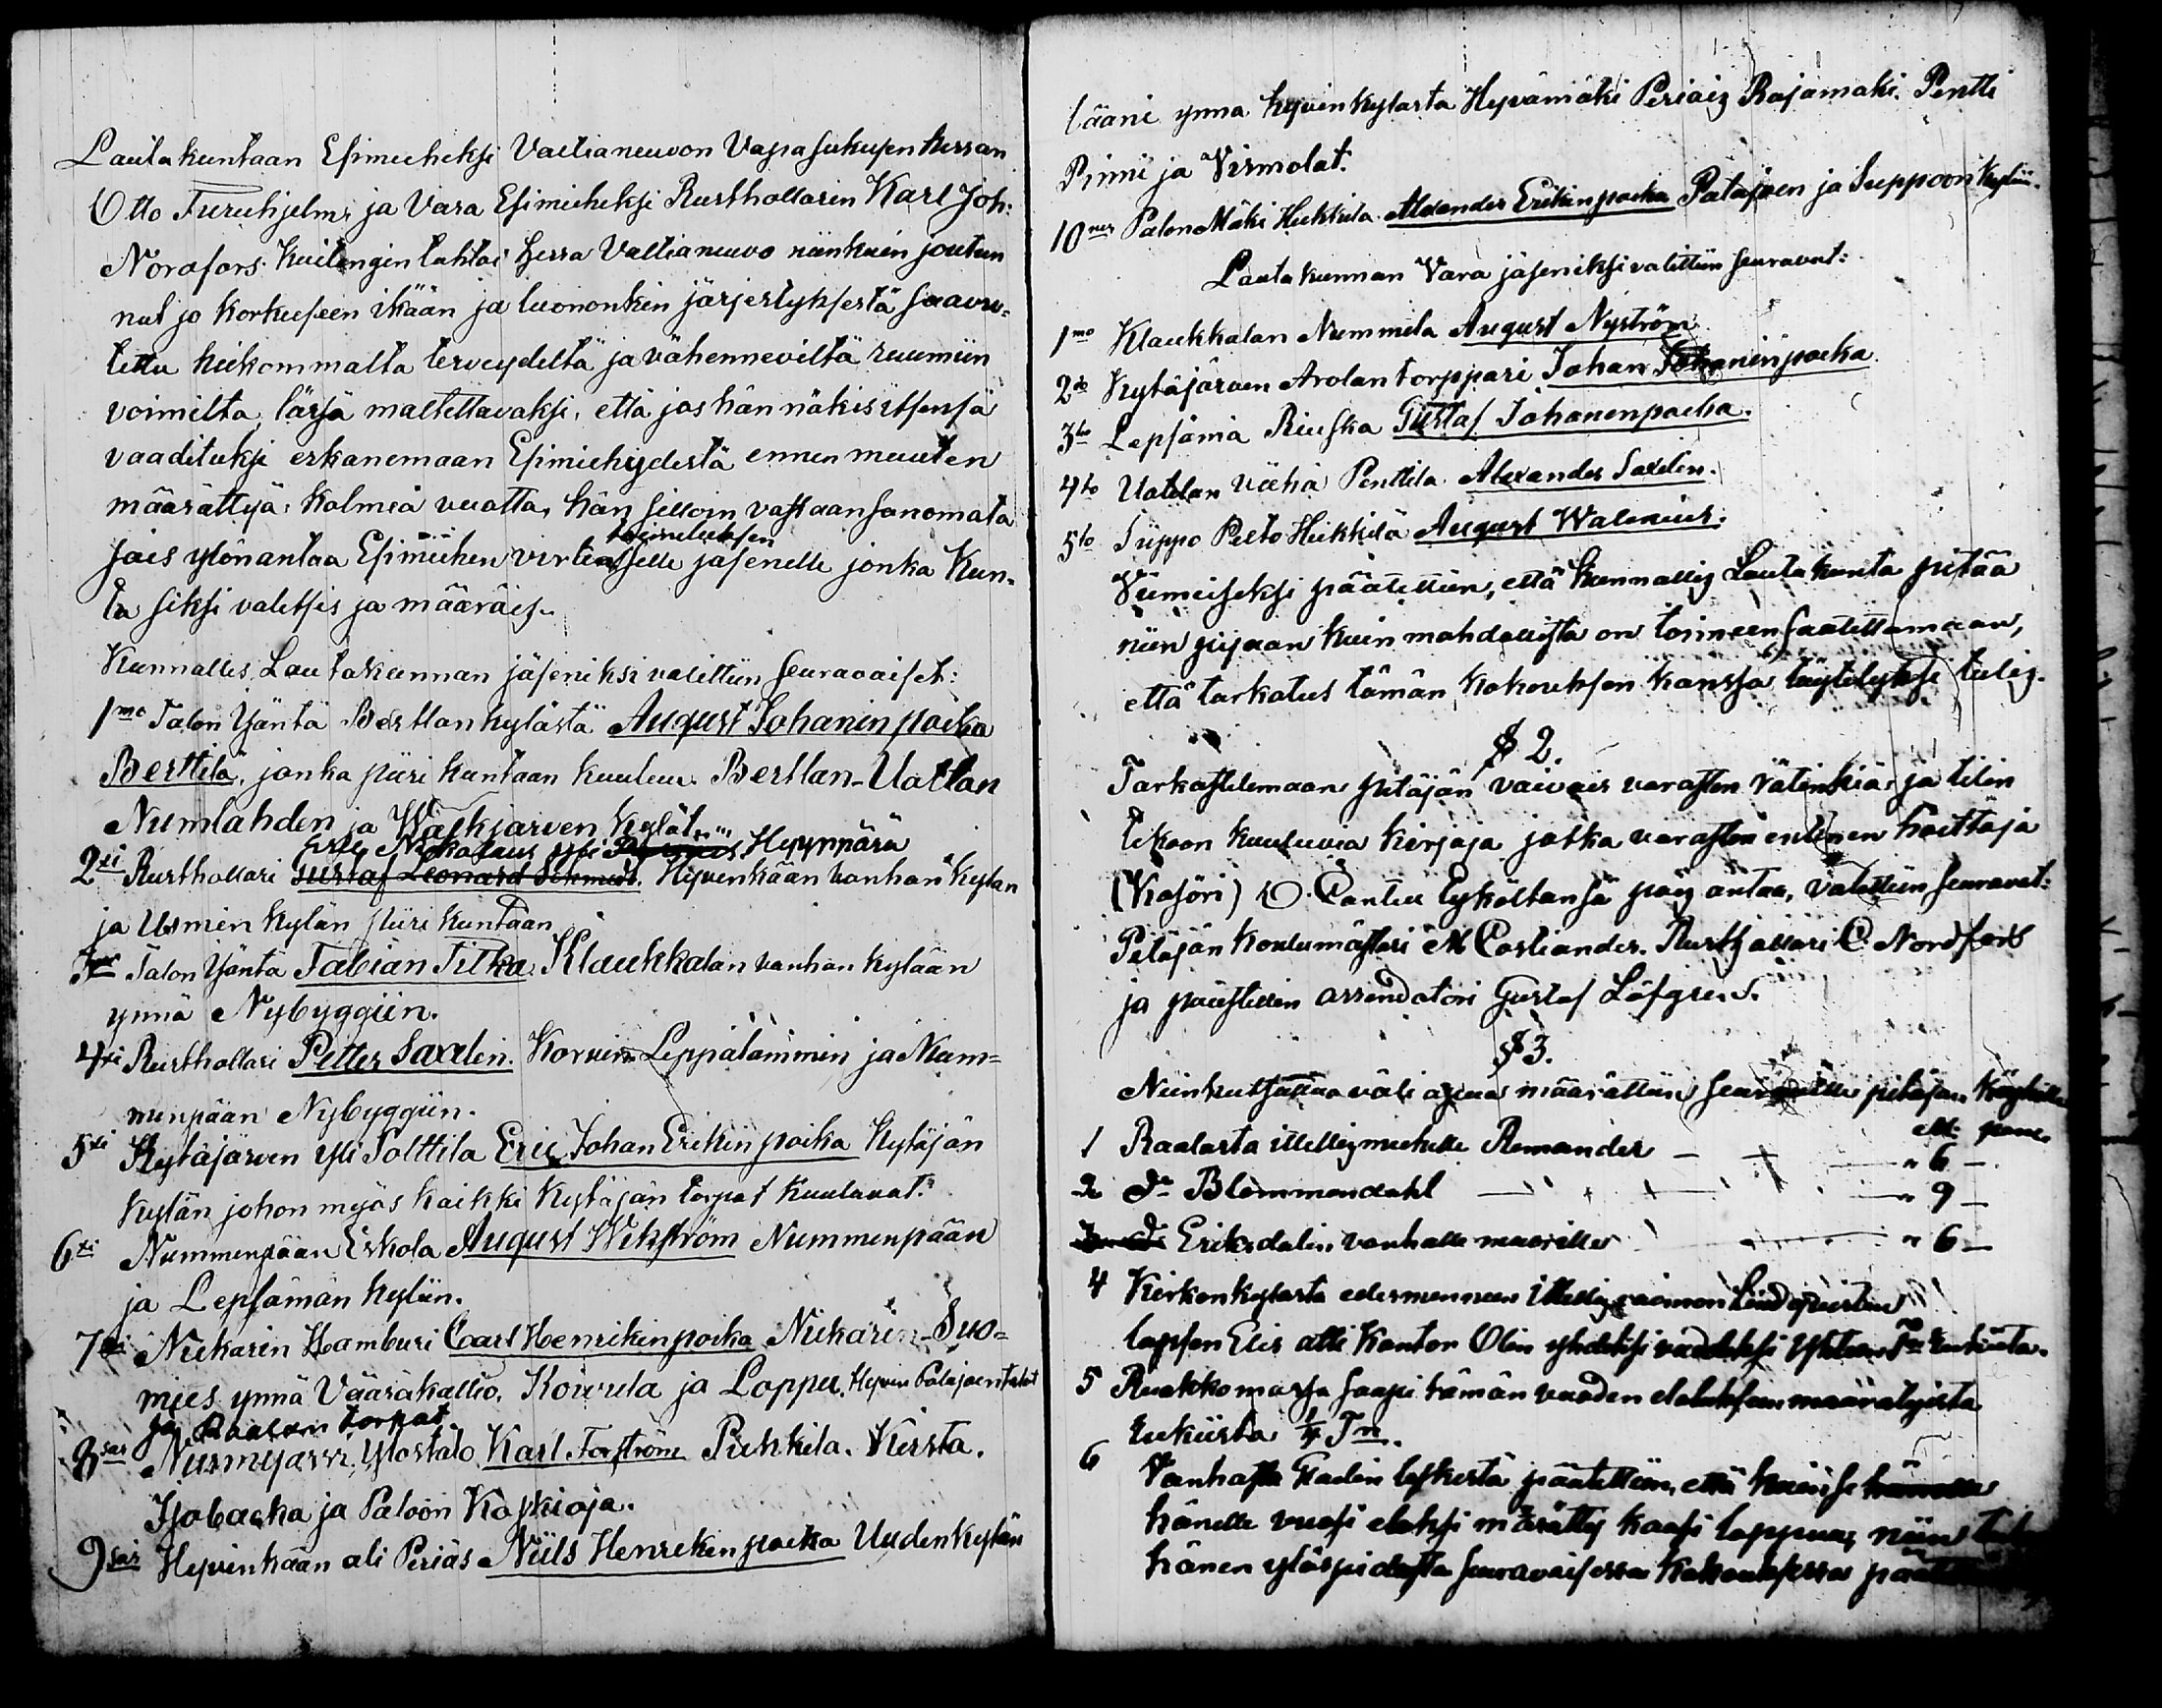 Lautakuntaan Esimieheksi Valtianeuvon Vapasukusen herran
Otto Furuhjelm, ja Vara Esimieheksi Rusthollarin Karl Joh:
Nordfors. Kuitengin tahtoi Herra Valtianeuvo niinkuin joutu-
nut jo korkuseen ikään ja luononkin järjestyksestä saavu-
tettu heikommalta terveydeltä ja vähenneviltä ruumiin
voimilta, läsä maltettavaksi, että jos hän näkis itsensä
vaadituksi erkanemaan Esimiehydestä ennen muuten
määrättyä kolmea vuotta, hän silloin vastaansanomata
sais ylönantaa Esimiehen virka toimituksen selle jäsenelle jonka Kun-
ta siksi valitsis ja määräis.
Kunnallis Lautakunnan jäseniksi valittiin seuraavaiset:
1mo Talon Isäntä Bertlan kylästä August Johanin poika
Berttilä, jonka piiri kuntaan kuuluu Bertlan-Uotlan
Numlahden ja Walkjärven kylät
Nikolaus Hyypपärä
2xi Rusthollari Gustaf Leonard Schmidt. Hyvenkään vanhan kylän
ja Usmin kylän piiri kuntaan
Talon Isäntä Fabian Titka Klaukkalan vanhan kylään
ynnä Nybyggiin.
4xi Rusthollari Petter Saxelin. Korwen Leppälammin ja Num-
menpään Nybyggiin.
5xi Kytäjärven yli Solttila Eric Johan Erikin poika Kytäjän
kylän johon myös kaikki Kytäjän torpat kuuluvat.
6xi Nummenpään Eskola August Wikström Nummenpään
ja Lepsämän kyliin.
7xi Nukarin Hamburi Carl Henrikin poika Nukarin-Suo-
mies ynnä Vääräkallio, Koivula ja Loppu, Hyven Palajoen talot
ja Raalan torpat
8sas Nurmijärvi Ylostalo Karl Forström Pukkila. Kirsta.
Isobacka ja Paloon Koskioja.
9sas Hyvinkään ali Periäs Niils Henrikin poika Uudenkylän
lääni ynna hyvinkylasta Hyvämäki Periäis Rajamäki. Pentti
Pinni ja Virmolat.
10nes Palon Mäki Heikkila Alexander Erikin poika Palajoen ja Suppoon kyliin.
Lautakunnan Vara jäseniksi valittiin seuravat:
1mo Klaukkalan Nummela August Nyström
2do Kytäjärven Arolan torppari Johan Johanin poika
3to Lepsämä Riuska Gustaf Johanenpoika.
4to Uotilan vähä Penttila. Alexander Saxelin.
5to Suppo Pelto Heikkilä August Walenius.
Viimeiseksi päätettiin, että kunnallis Lautakunta pitää
niin pijaan kuin mahdollista on toimeen saatettamaan,
että tarkotus tämän kokouksen kanssa täytetykse tulis.
§ 2.
Tarkastelemaan pitäjän vaivais varaston rätinkiä ja tilin
tekoon kuuluvia kirjaja jotka varaston entinen hoittaja
(Kasöri) Cantell tyköltansä pois antaa, valittiin seuravat:
Pitäjän koulumästari M Costiander. Rusthollari C. Nordfors
ja päästilin arrendatori Gustaf Löfgren.
§ 3.
määrättiin pitäjän köyhille
1 Raalasta ittellismiehelle Remander — — „ 6 —
2 do Blommendahl — — „ 9 —
Eriksdalin vanhalle muorille „ 6 —
4 Kirkonkylasta edesmenneen ittellis vaimon Lindqvistin
lapsen Elis otti Kantor Olin yhdeksi vuodeksi
5 saapi tämän vuoden elatuksen määrätyistä
rukiista ¼ Tn.
6 Vanhasta leskestä päätettiin, että
hänelle vuosi eloksi määrätty kaasi loppuu, niin
hänen ylöspidosta seuravaisessa kokouksessa